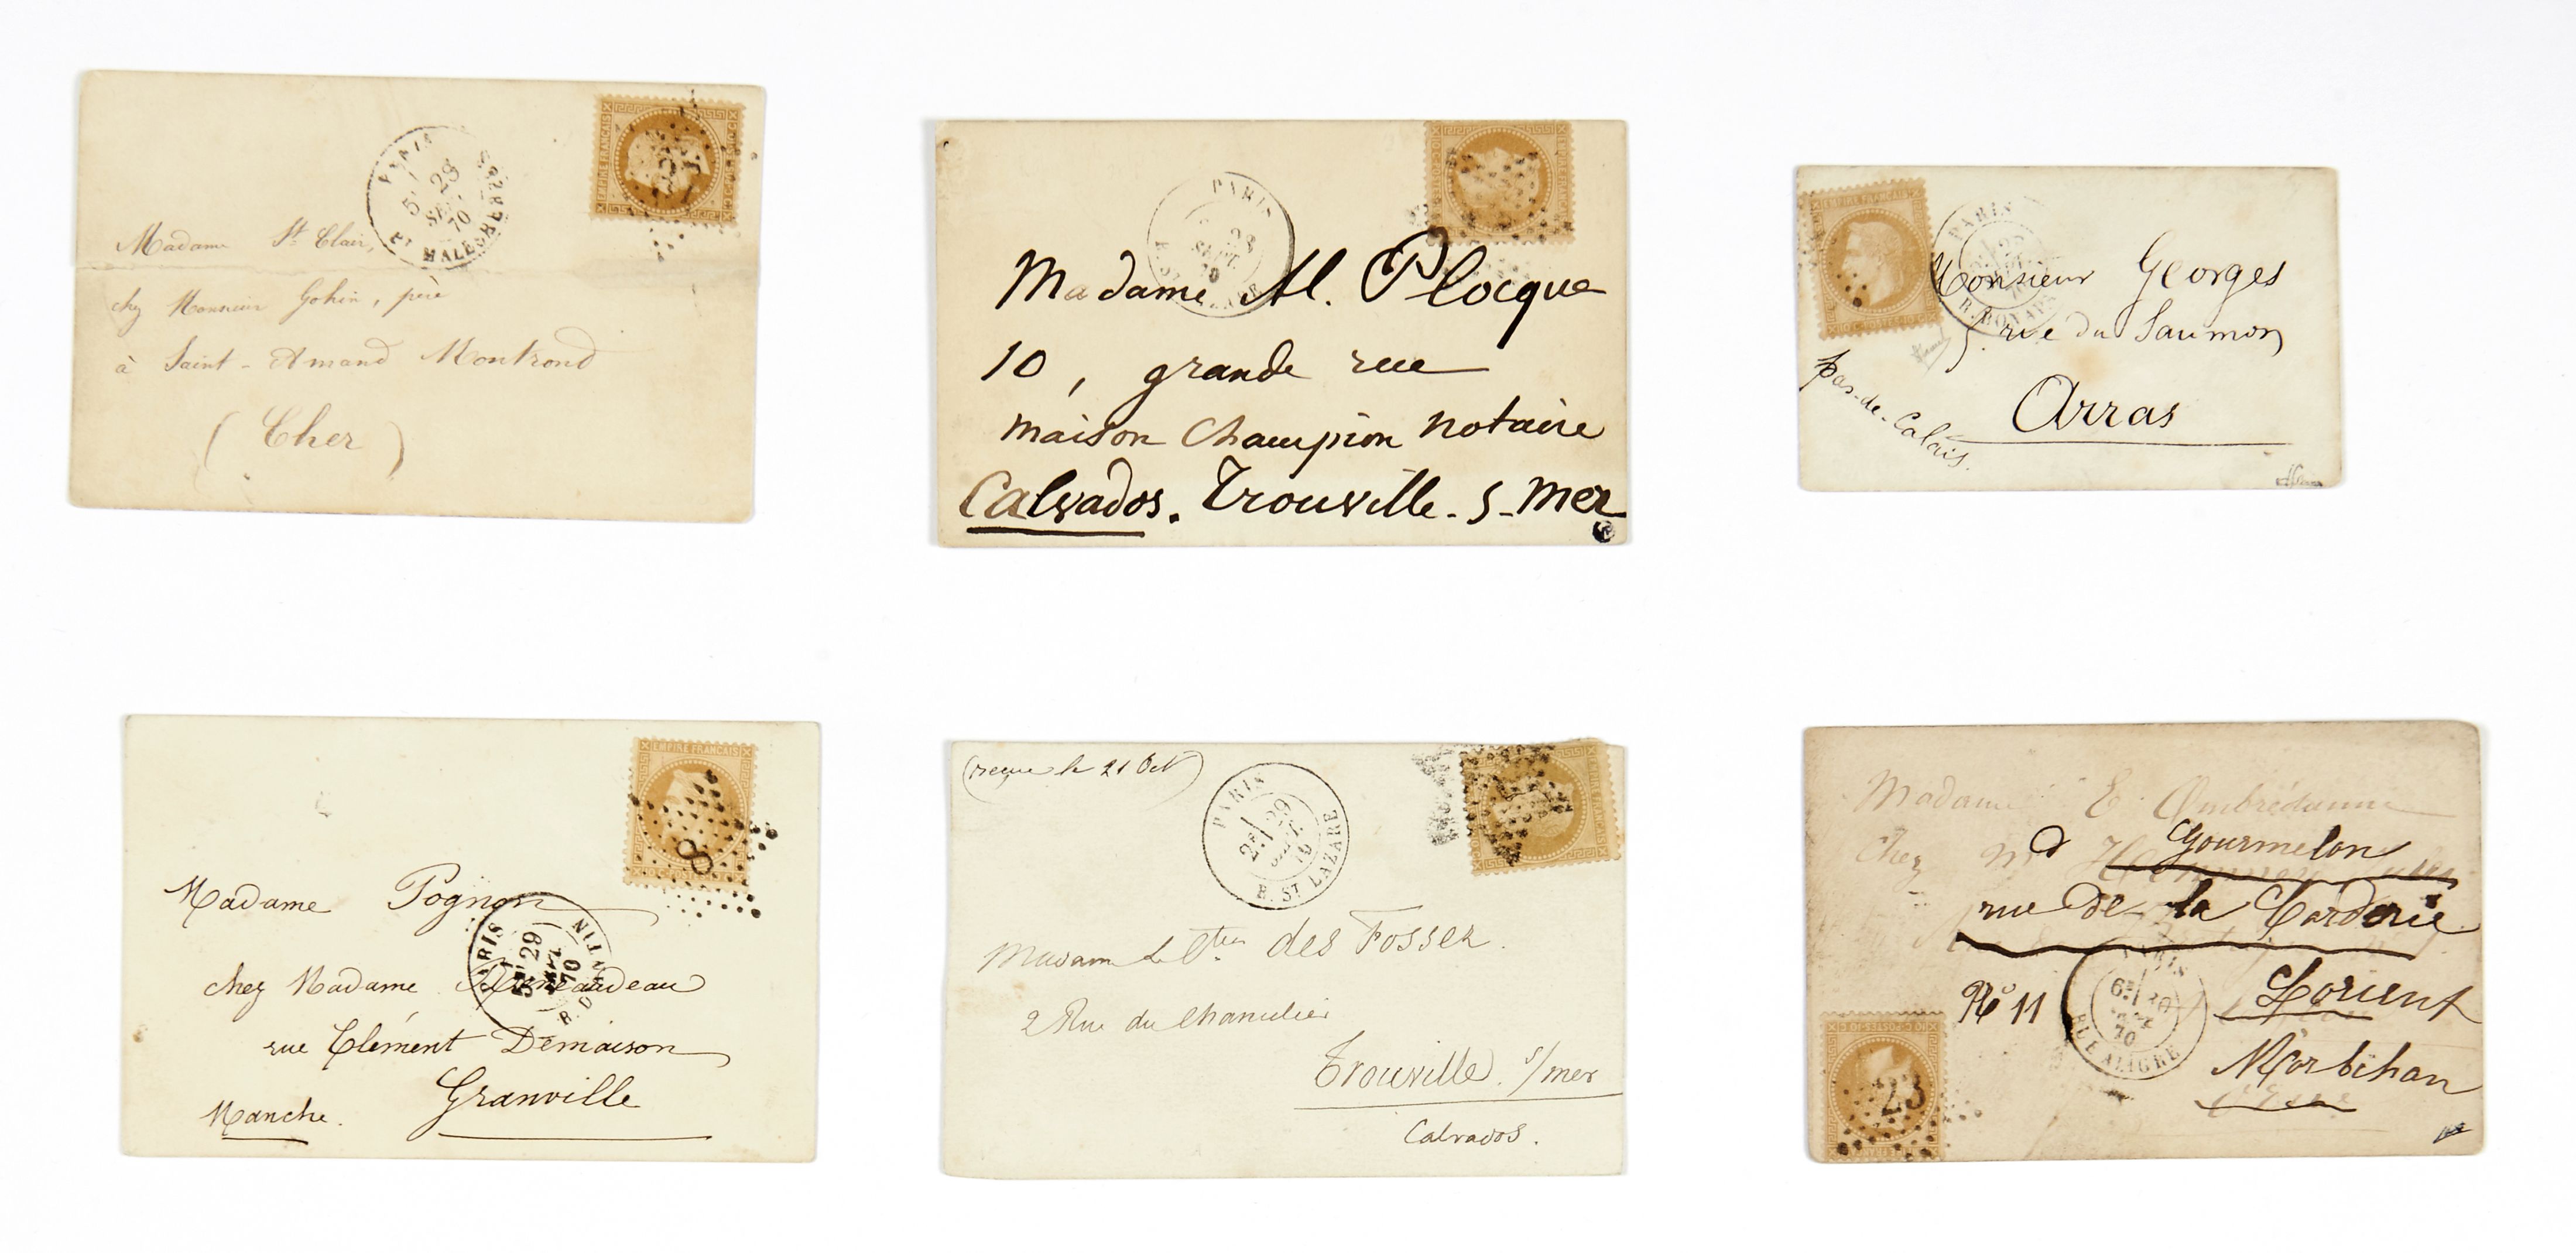 PARIS
5E 28
SEPT.
70
BT MALESHERBES
EMPIRE FRANCAIS
Madame St Clair,
chez Monsieur Gohin, père
à Saint-Amand Montrond
(Cher)
PARIS
28
SEPT.
70
R. ST LAZARE
Madame Al. Plocque
10, grande rue
maison Champion notaire
Calvados. Trouville-s-Mer
EMPIRE FRANCAIS
PARIS
R. BONAP
Monsieur Georges
5 rue du Saumon
Arras
pas-de-Calais.
EMPIRE FRANCAIS
8
PARIS
5E 29
SEPT.
70
R. D'ANTIN
Madame Pognon
chez Madame
rue Clément Demaison
Granville
Manche.
(reçue le 21 Oct)
PARIS
2E 29
SEPT.
70
R. ST LAZARE
Madame La Ctesse des Fossez.
2 Rue du Chancelier
Trouville s/mer
Calvados.
Madame E. Ombrédanne
Chez Md Gourmelon
rue de la Corderie
No 11 Lorient
Morbihan
PARIS
6E 30
SEPT.
70
RUE ALIGRE
23